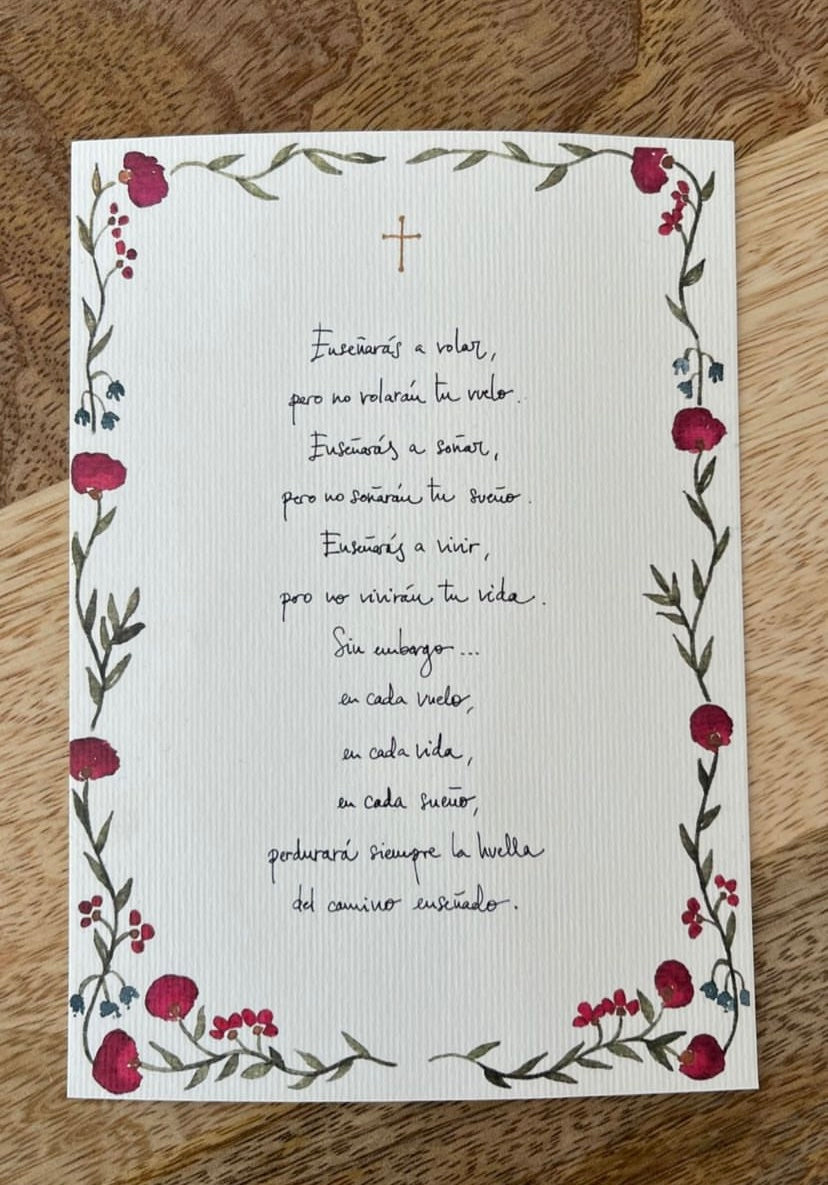 Enseñarás a volar,
pero no volarán tu vuelo.
Enseñarás a soñar,
pero no soñarán tu sueño.
Enseñarás a vivir,
pero no vivirán tu vida.
Sin embargo...
en cada vuelo,
en cada vida,
en cada sueño,
perdurará siempre la huella
del camino enseñado.